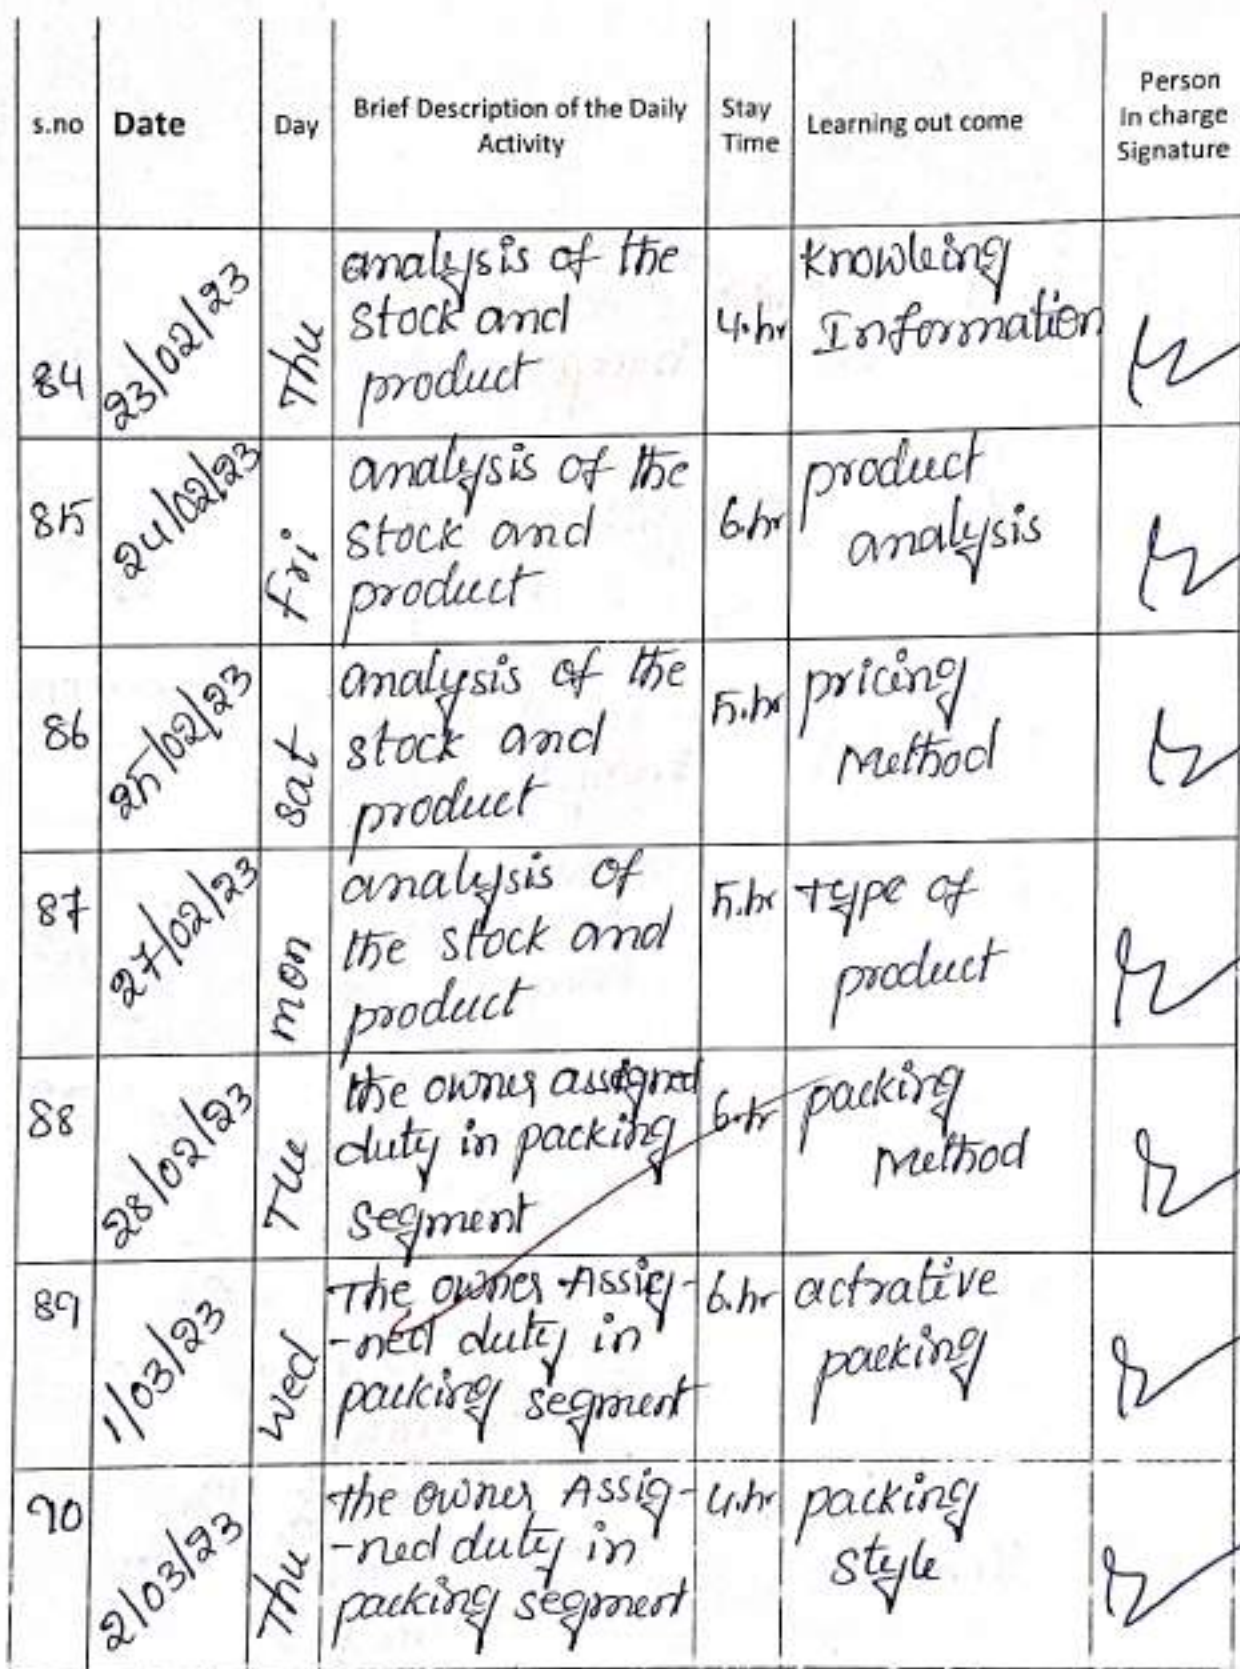 s.no Date Day Brief Description of the Daily Activity Stay Time Learning out come Person In charge Signature
84 23/02/23 Thu
analysis of the
stock and
product
4.hr
knowleing
Information
85 24/02/23 Fri
analysis of the
stock and
product
6.hr
product
analysis
86 25/02/23 sat
analysis of the
stock and
product
5.hr
pricing
method
87 27/02/23 mon
analysis of
the stock and
product
5.hr
type of
product
88 28/02/23 Tue
the owner assigned
duty in packing
segment
6.hr
packing
method
89 1/03/23 wed
The owner Assig-
-ned duty in
packing segment
6.hr
actrative
packing
90 2/03/23 Thu
the owner Assig-
-ned duty in
packing segment
4.hr
packing
style